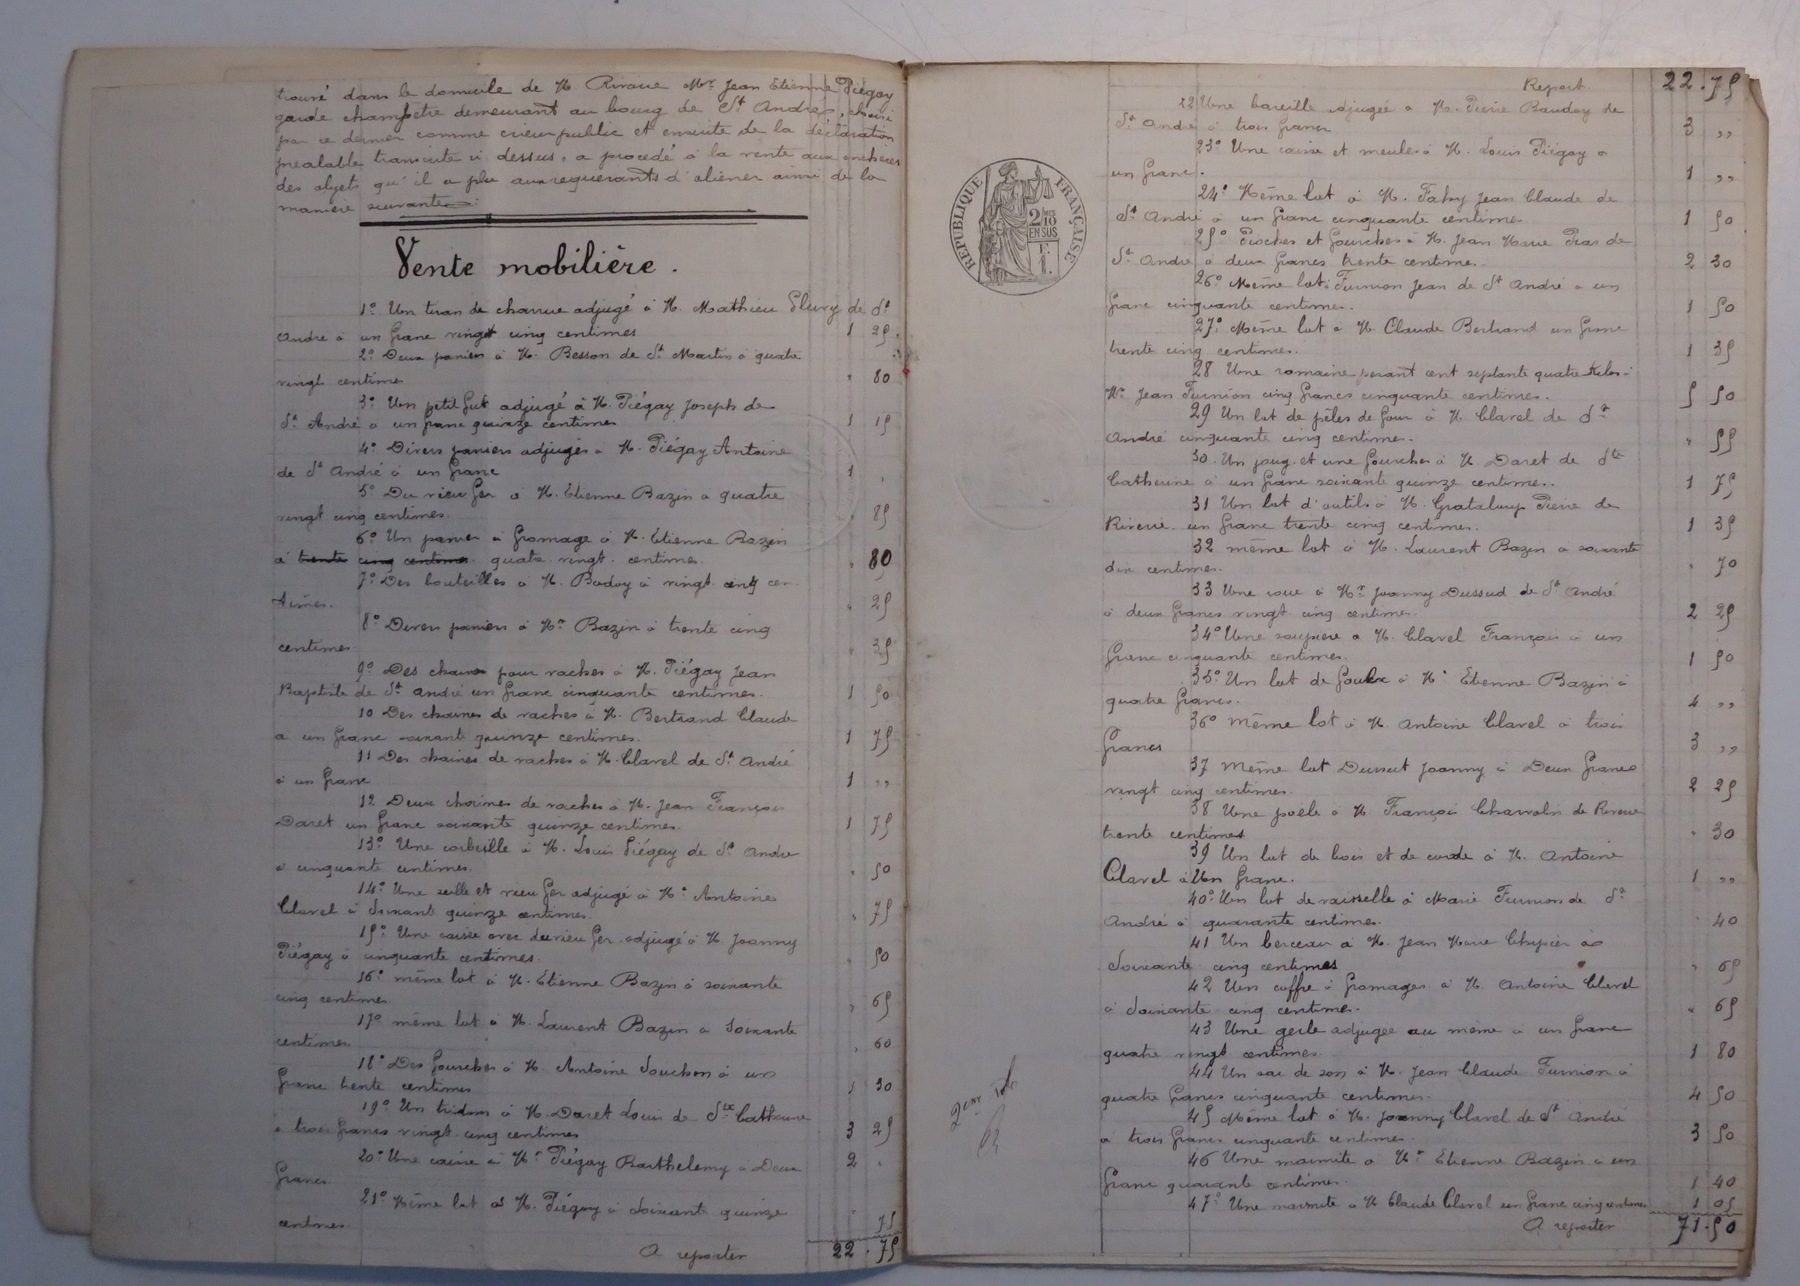 trouvé dans le domicile de M Rivoire Mr Jean Etienne Piégay
garde champêtre demeurant au bourg de St André, choisi
par ce dernier comme crieur public et ensuite de la déclaration
préalable transcrite ci dessus, a procédé à la vente aux enchères
des objets qu'il a plu aux requérants d'aliéner ainsi de la
manière suivante :
Vente mobilière.
1° Un tiran de charrue adjugé à M. Mathieu Fleury de St
André à un franc vingt cinq centimes 1 25
2° Deux paniers à M. Besson de St Martin à quatre
vingt centimes " 80
3° Un petit fut adjugé à M. Piégay Joseph de
St André à un franc quinze centimes 1 15
4° Divers paniers adjugés à M. Piégay Antoine
de St André à un franc 1 "
5° Du vieu fer à M. Etienne Bazin à quatre
vingt cinq centimes " 85
6° Un panier à fromage à M. Etienne Bazin
à trente cinq centimes quatre vingt centimes. " 80
7° Des bouteilles à M. Badoy à vingt cinq cen
times. " 25
8° Divers paniers à Mr Bazin à trente cinq
centimes " 35
9° Des chaines pour vaches à M. Piégay Jean
Baptiste de St André un franc cinquante centimes. 1 50
10 Des chaines de vaches à M. Bertrand Claude
à un franc soixante quinze centimes. 1 75
11 Des chaines de vaches à M. Clavel de St André
à un franc 1 ,,
12 Deux chaines de vaches à M. Jean François
Daret un franc soixante quinze centimes. 1 75
13° Une corbeille à M. Louis Piégay de St André
à cinquante centimes. " 50
14° Une seille et vieu fer adjugé à M. Antoine
Clavel à soixante quinze centimes. " 75
15° Une caisse avec du vieu fer adjugé à M. Joanny
Piégay à cinquante centimes. " 50
16° même lot à M. Etienne Bazin à soixante
cinq centimes. " 65
17° même lot à M. Laurent Bazin à soixante
centimes. " 60
18° Des fourches à M. Antoine Souchon à un
franc trente centimes 1 30
19° Un tridem à M. Daret Louis de Ste Catherine
à trois francs vingt cinq centimes 3 25
20° Une caisse à Mr Piégay Barthelemy à Deux 2 "
francs.
21° Même lot à M. Piégay à soixante quinze
centimes 75
A reporter 22.75
Report. 22.75
22 Une bareille adjugée à M. Pierre Baudoy de
St André à trois francs 3 ,,
23° Une caisse et meules à M. Louis Piégay à
un franc. 1 ,,
24° Même lot à M. Jean Claude de
St André à un franc cinquante centimes 1 50
25° Pioches et fourches à M. Jean Marie Pras de
St André à deux francs trente centimes. 2 30
26° Même lot. Furnion Jean de St André à un
franc cinquante centimes. 1 50
27° Même lot à M. Claude Bertrand un franc
trente cinq centimes. 1 35
28 Une romaine pesant cent septante quatre kilos à
Mr Jean Furnion cinq francs cinquante centimes. 5 50
29 Un lot de pêles de four à M Clavel de St
André cinquante cinq centimes. " 55
30. Un joug et une fourches à M. Daret de Ste
Catherine à un franc soixante quinze centimes. 1 75
31 Un lot d'outils à M. Grataloup Pierre de
Riverie un franc trente cinq centimes. 1 35
32 même lot à M. Laurent Bazin à soixante
dix centimes. " 70
33 Une roue à Mr Joanny Dussud de St André
à deux francs vingt cinq centimes. 2 25
34° Une soupiere à M. Clavel François à un
franc cinquante centimes. 1 50
35° Un lot de à M. Etienne Bazin à
quatre francs. 4 ,,
36° Même lot à M. Antoine Clavel à trois
francs 3 ,,
37 Même lot Dussut Joanny à Deux francs
vingt cinq centimes. 2 25
38 Une poële à M François Charvolin de Riverie
trente centimes " 30
39 Un lot de bois et de corde à M. Antoine
Clavel à Un franc. 1 ,,
40° Un lot de vaisselle à Marie Furnion de St
André à quarante centimes. 40
41 Un berceau à M. Jean Marie à
soixante cinq centimes " 65
42 Un coffre à fromages à M. Antoine Clavel
à soixante cinq centimes. " 65
43 Une gerle adjugée au même à un franc
quatre vingt centimes 1 80
44 Un sac de son à M. Jean Claude Furnion à
quatre francs cinquante centimes. 4 50
45 Même lot à M. Joanny Clavel de St André
à trois francs cinquante centimes. 3 50
46 Une marmite à Mr Etienne Bazin à un
franc quarante centimes. 1 40
47° Une marmite à M Claude Clavel un franc cinq centimes 1 05
A reporter 71.50
RÉPUBLIQUE FRANÇAISE
2/10
EN SUS
F.
1.
2eme rôle